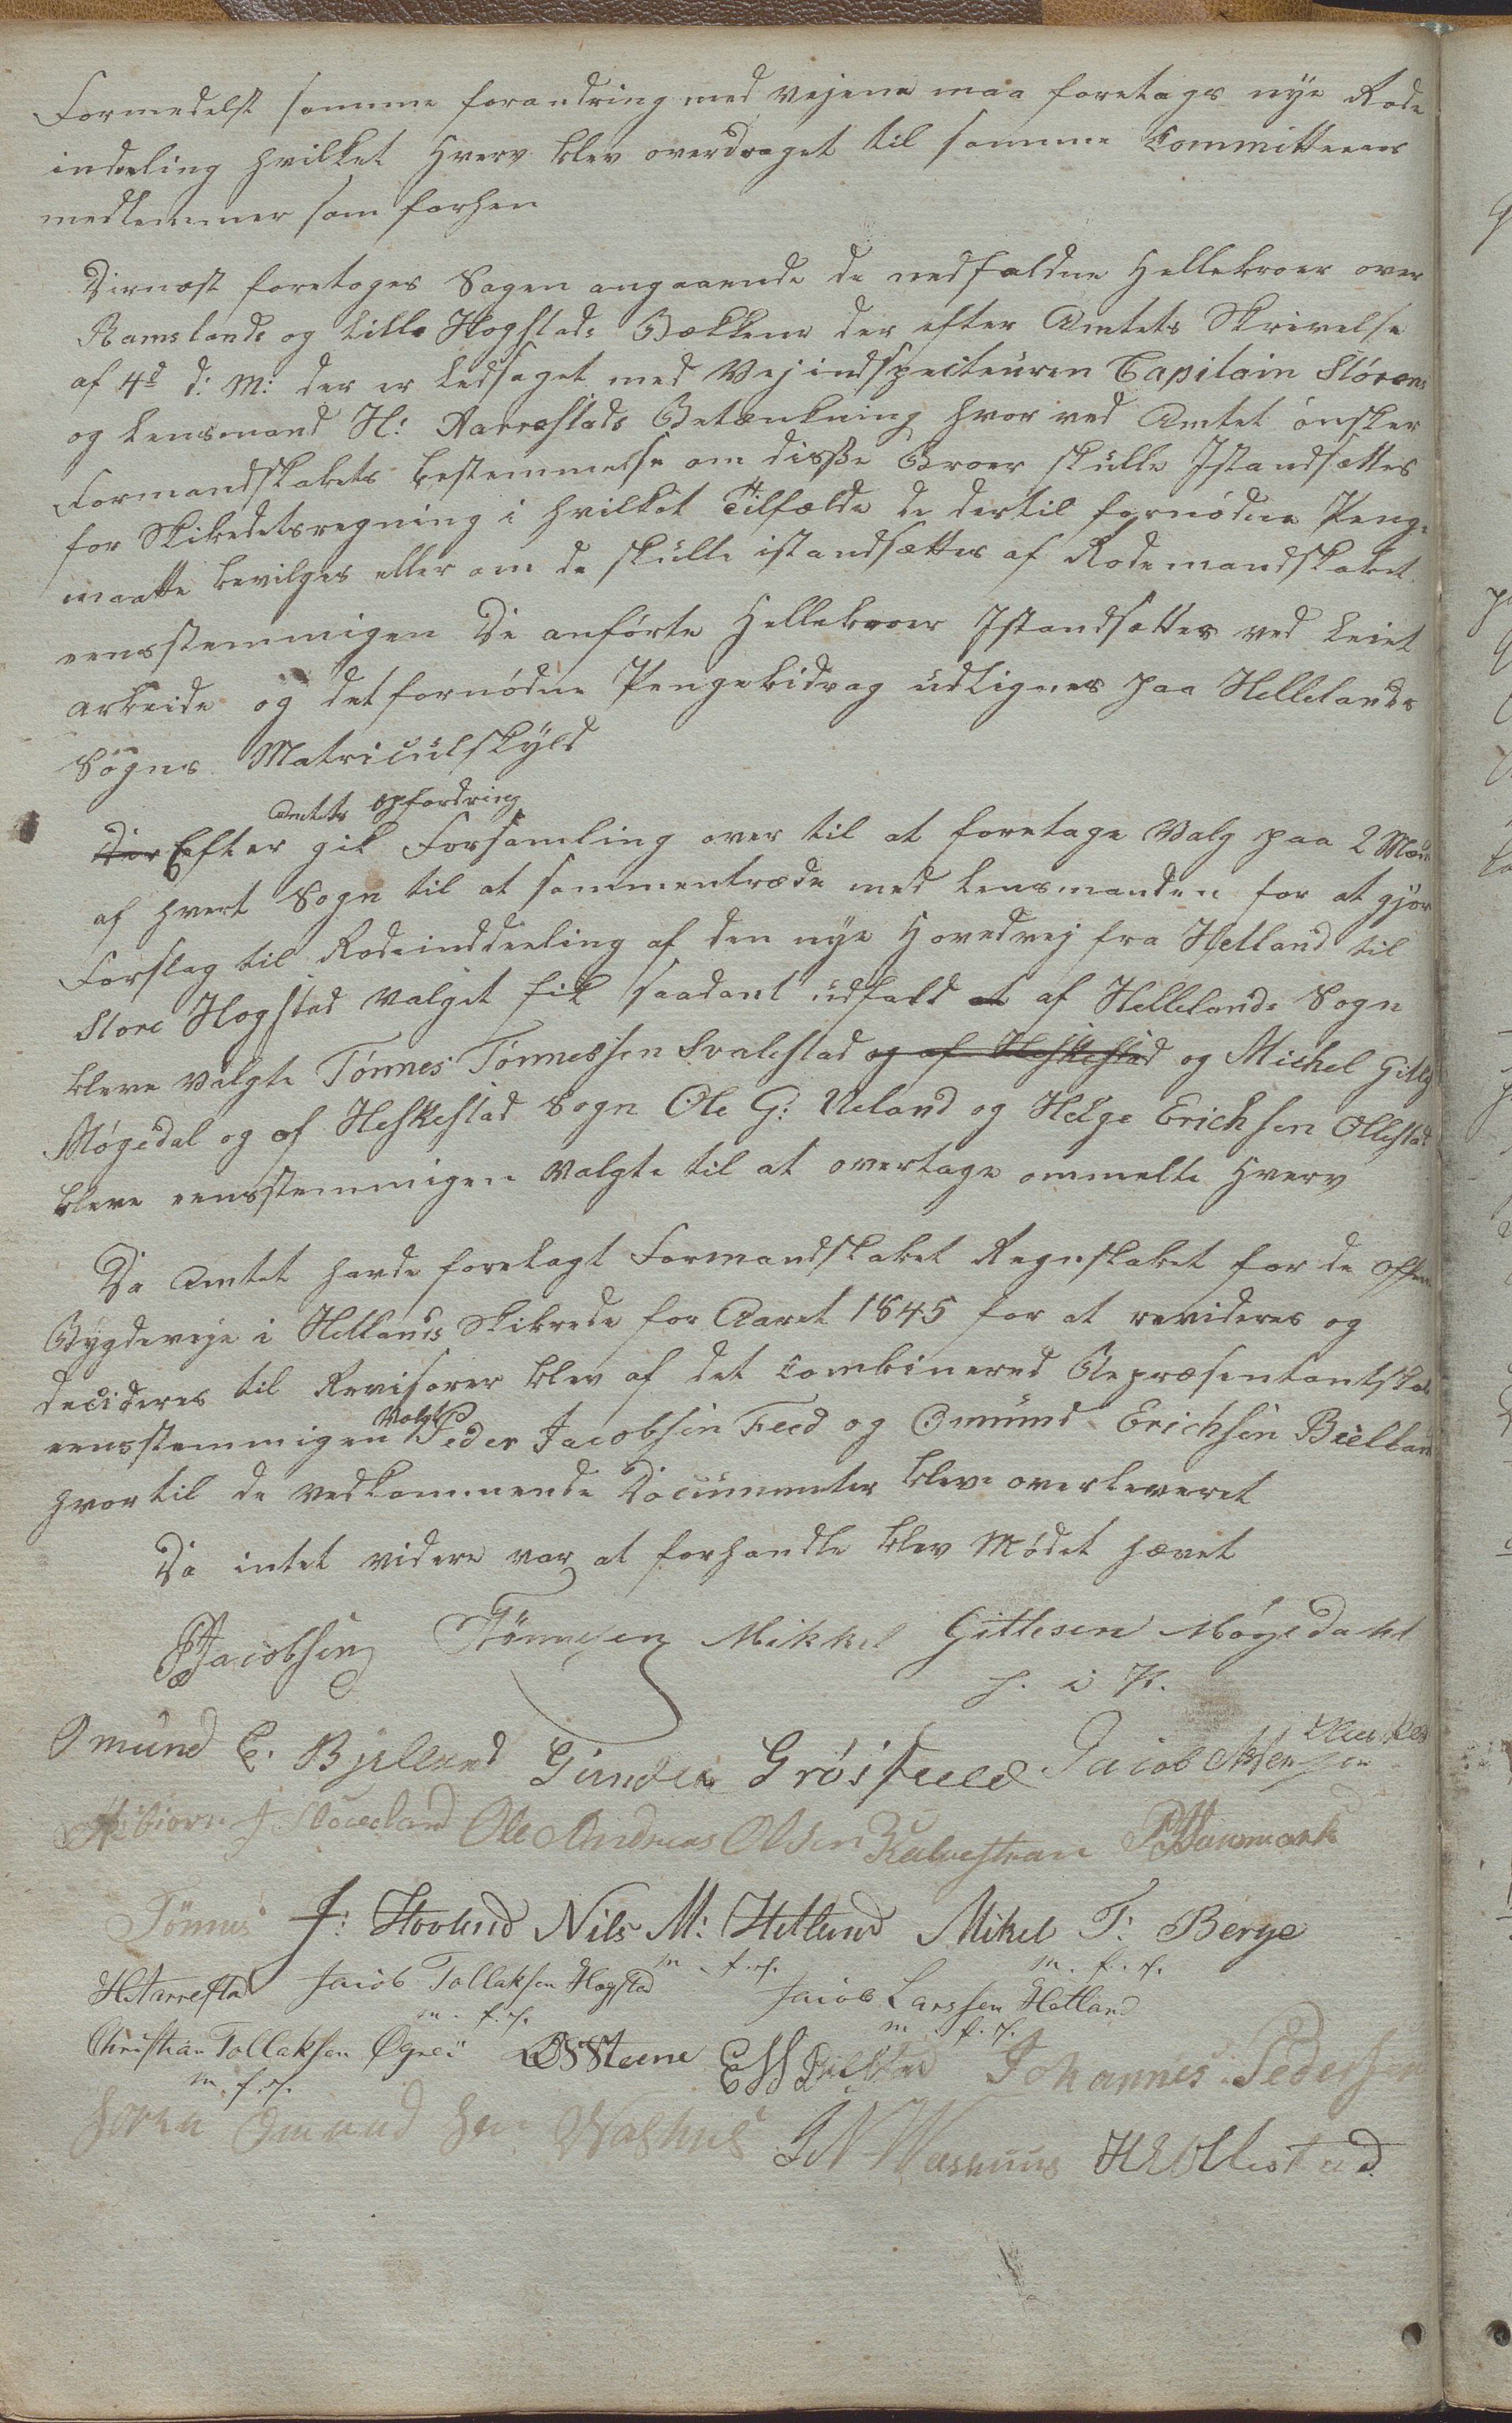 Formedelst samme forandring med Vejene maa foretages nye Rode
indeeling hvilket Hverv blev overdraget til samme Committeens
medlemmer som forhen
Dernæst foretoges Sagen angaaende de nedfaldne Hellebroer over
Ramslands og Lille Hogstads Bækkene der efter Amtets Skrivelse
af 4d d: M: der er ledsaget med Vejindspecteuren Capitain Stórens
og Lensmand H: Aarrestads Betænkning hvor ved Amtet ónsker
Formandskabets bestemmelse om disse Broer skulle Istandsættes
for Skibredetsregning i hvilket Tilfælde de dertil fornødne Penge
maatte bevilges eller om de skulle istandsættes af Rodemandskabet.
eensstemmigen De anførte Hellebroer Istandsættes ved Leiet
arbeide og det fornødne Pengebidrag udlignes paa Hellelands
Sogns Matriculskyld
Amtets Opfordring
Der Efter gik Forsamling over til at foretage Valg paa 2 Mænd
af hvert Sogn til at sammentræde med Lensmanden for at gjøre
Forslag til Rodeinddeeling af den nye Hovedvej fra Helland til
Store Hogstad Valget fik saadant udfald at af Hellelands Sogn
bleve valgte Tónnes Tónnessen Svalestad og af Heskestad og Michel Gitles
Mógedal og af Heskestad Sogn Ole G: Ueland og Helge Erichsen Ollestad
bleve eensstemmigen Valgte til at overtage ommeldte Hverv
Da Amtet havde forelagt Formandskabet Regnskabet for de offent
Bygdeveje i Hetlands Skibrede for Aaret 1845 for at revideres og
decideres til Revisorer blev af det combinered Repræsentantskab
eensstemmigen valgt Peder Jacobsen Feed og Omund Erichsen Bielland
hvortil de vedkommende Documenter bleve overleveret
Da intet videre var at forhandle blev Mødet hævet
PJacobsen Tónnesen Mikkel Gitlesen Mógedahl
Omund E. Bjelland Gunder Grósfjeld Jacob
Ole Andreas Olsen PDanmark
Tónnes J: Hovland Nils M: Hetland Mikel T: Berge
m. f. P. m. f. P.
HAarrestad Jacob Tollaksen Hogstad Jacob Larssen Hetland
m. f. P. m. f. P.
Christian Tollaksen Øgrei OSSteene Johannes Pedersen
m. f. P.
Omund HEOllestad